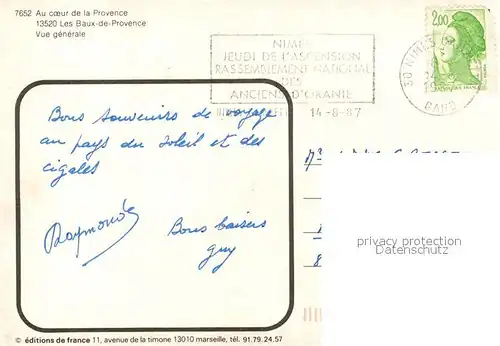 7652 Au cœur de la Provence
13520 Les Baux-de-Provence
Vue générale
NIMES
JEUDI DE L'ASCENSION
RASSEMBLEMENT NATIONAL
DES
ANCIENS D'ORANIE
14-8-87
30 NIMES
GARD
2,00
Bons souvenirs de voyage
au pays du soleil et des
cigales
Raymonde
Bons baisers
guy
privacy protection
Datenschutz
© éditions de france 11, avenue de la timone 13010 marseille, tél. 91.79.24.57